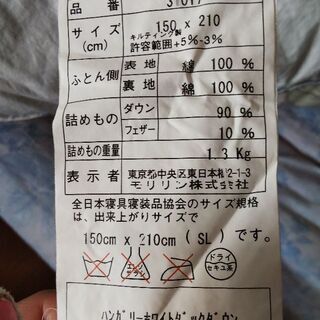 品 番
サイズ 150 x 210
(cm) キルティング製
許容範囲+5%-3%
ふとん側 表 地 綿 100 %
裏 地 綿 100 %
詰めもの ダウン 90 %
フェザー 10 %
詰めもの重量 1.3 Kg
表 示 者 東京都中央区東日本橋2-1-3
モリリン株式会社
全日本寝具寝装品協会のサイズ規格
は、出来上がりサイズで
150cm x 210cm ( SL ) です。
エンソ
サラシ
ドライ
セキユ系
ハンガリーホワイトダックダウン